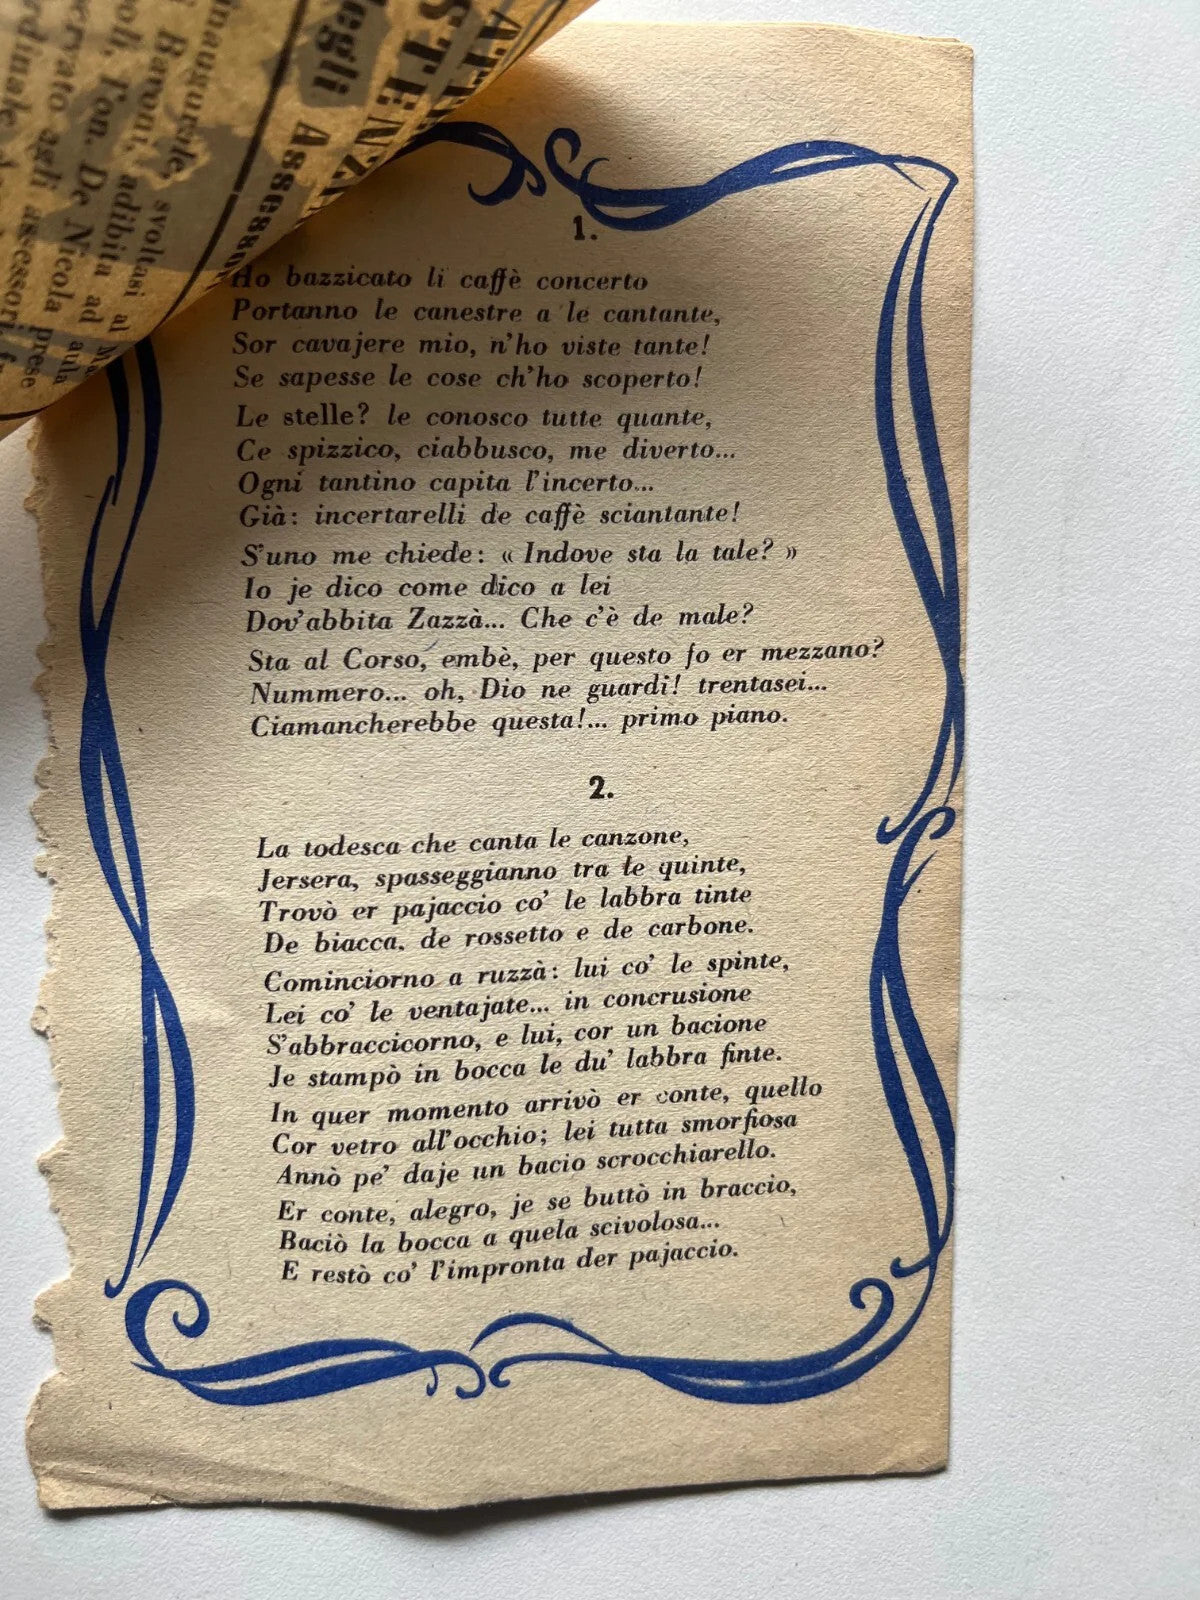 STENZA
degli Assessori
inaugurale, svoltasi al
i Baroni, adibita ad aula
poli, l'on. De Nicola prese
ervato agli assessori
1.
Ho bazzicato li caffè concerto
Portanno le canestre a le cantante,
Sor cavajere mio, n'ho viste tante!
Se sapesse le cose ch'ho scoperto!
Le stelle? le conosco tutte quante,
Ce spizzico, ciabbusco, me diverto...
Ogni tantino capita l'incerto...
Già: incertarelli de caffè sciantante!
S'uno me chiede: « Indove sta la tale? »
Io je dico come dico a lei
Dov'abbita Zazzà... Che c'è de male?
Sta al Corso, embè, per questo fo er mezzano?
Nummero... oh, Dio ne guardi! trentasei...
Ciamancherebbe questa!... primo piano.
2.
La todesca che canta le canzone,
Jersera, spasseggianno tra le quinte,
Trovò er pajaccio co' le labbra tinte
De biacca, de rossetto e de carbone.
Cominciorno a ruzzà: lui co' le spinte,
Lei co' le ventajate... in concrusione
S'abbraccicorno, e lui, cor un bacione
Je stampò in bocca le du' labbra finte.
In quer momento arrivò er conte, quello
Cor vetro all'occhio; lei tutta smorfiosa
Annò pe' daje un bacio scrocchiarello.
Er conte, alegro, je se buttò in braccio,
Baciò la bocca a quela scivolosa...
E restò co' l'impronta der pajaccio.